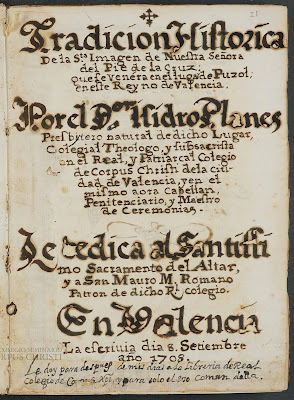 21
Tradicion Historica
De la Sta Imagen de Nuestra Señora
del Pie de la Cruz;
que se venera en el lugar de Puzol,
en este Reyno de Valencia.
Por el Dor Isidro Planes
Presbytero natural de dicho Lugar,
Colegial Theologo, y subsacrista
en el Real, y Patriarcal Colegio
de Corpus Christi de la ciu
dad de Valencia, y en el
mismo aora Capellan
Penitenciario, y Maestro
de Ceremonias.
Le dedica al Santissi
mo Sacramento del Altar,
y a San Mauro M. Romano
Patron de dicho Rl. colegio.
En Valencia
La escrivia dia 8. Setiembre
año 1709.
Le doy para despues de mis dias a la Libreria de Real
Colegio de Corpus Xpi, y para solo el uso comun della.
CORPUS CHRISTI